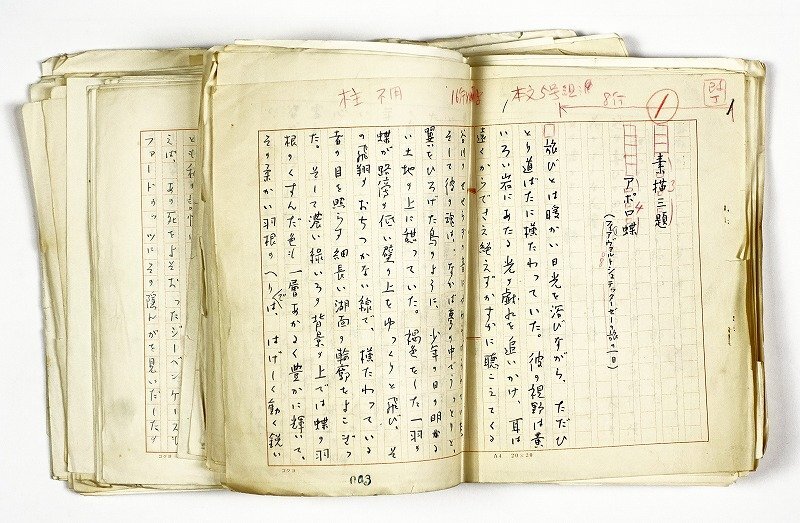 本文5号組
8行
1
柱 不用
素描三題
アポロ蝶
(フィアヴァルトシュテッターゼーの旅の一日)
旅びとは暖かい日光を浴びながら、ただひ
とり道ばたに横たわっていた。彼の視野は黄
いろい岩にあたる光の戯れを追いかけ、耳は
遠くからでさえ絶えずかすかに聴こえてくる
そして彼の魂は、なかば夢の中でうっとりと、
翼をひろげた鳥のように、少年の日の明かる
い土地の上に懸っていた。褐色をした一羽の
蝶が路傍の低い壁の上をゆっくりと飛び、そ
の飛翔のおちつかない線で、横たわっている
者の目を照らす細長い湖面の輪廓をよこぎっ
た。そして濃い緑いろの背景の上では蝶の羽
根のくすんだ色も一層あかるく豊かに輝いて、
その柔かい羽根のへりでは、はげしく動く鋭い
003
とも私の
えば、あの死をよそおったジーベンケースも
ファードゥッツにその隠れがを見いだしたの
B4 20×20